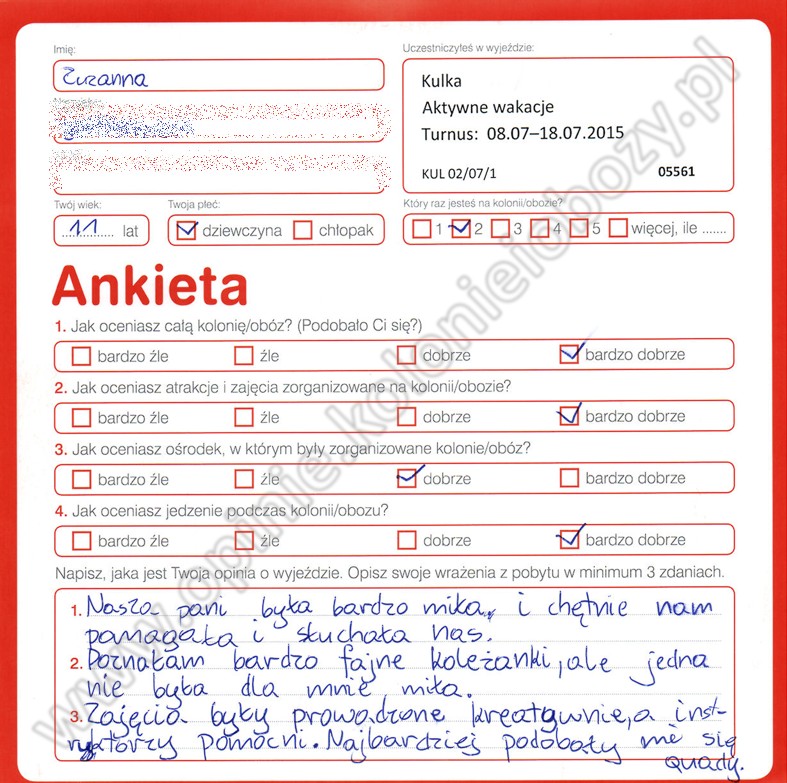 Imię:
Uczestniczyłeś w wyjeździe:
Zuzanna
Kulka
Aktywne wakacje
Turnus: 08.07–18.07.2015
KUL 02/07/1 05561
Twój wiek:
Twoja płeć:
Który raz jesteś na kolonii/obozie?
11 lat
dziewczyna chłopak
1 2 3 4 5 więcej, ile .......
Ankieta
1. Jak oceniasz całą kolonię/obóz? (Podobało Ci się?)
bardzo źle źle dobrze bardzo dobrze
2. Jak oceniasz atrakcje i zajęcia zorganizowane na kolonii/obozie?
bardzo źle źle dobrze bardzo dobrze
3. Jak oceniasz ośrodek, w którym były zorganizowane kolonie/obóz?
bardzo źle źle dobrze bardzo dobrze
4. Jak oceniasz jedzenie podczas kolonii/obozu?
bardzo źle źle dobrze bardzo dobrze
Napisz, jaka jest Twoja opinia o wyjeździe. Opisz swoje wrażenia z pobytu w minimum 3 zdaniach.
1. Nasza pani była bardzo miła, i chętnie nam
pamagała i słuchała nas.
2. Poznałam bardzo fajne koleżanki, ale jedna
nie była dla mnie miła.
3. Zajęcia były prowadzone kreatywnie, a inst-
ruktorzy pomocni. Najbardziej podobały mi się
quady.
www.opinie.kolonieiobozy.pl